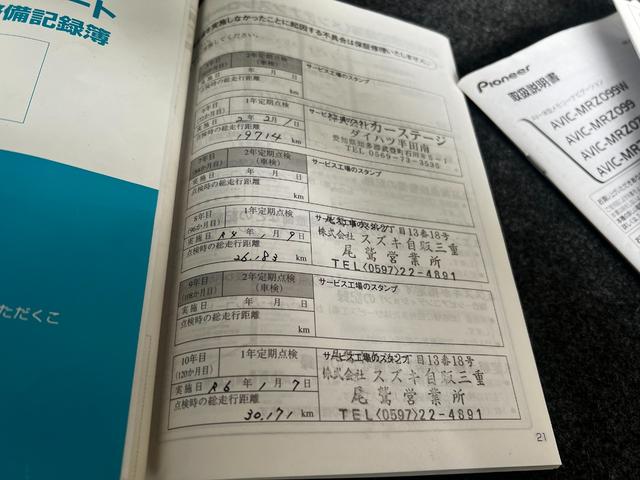 ート
備記録簿
ただくこ
実施しなかったことに起因する不具合は保証修理いたしません。
2年定期点検
(車検)
サービス工場のスタンプ
実施日 年 月 日
点検時の総走行距離
km
1年定期点検
実施日 2年 2月 1日
点検時の総走行距離
19714 km
カーステージ
ダイハツ半田南
TEL 0569-73-3535
7年目
2年定期点検
(車検)
サービス工場のスタンプ
実施日 年 月 日
点検時の総走行距離
km
8年目
(96か月目)
1年定期点検
実施日 R4年 1月 9日
点検時の総走行距離
26,183 km
目13番18号
株式会社 スズキ自販三重
尾鷲営業所
TEL(0597)22-4891
9年目
(108か月目)
2年定期点検
(車検)
サービス工場のスタンプ
実施日 年 月 日
点検時の総走行距離
km
10年目
(120か月目)
1年定期点検
実施日 R6年 1月 7日
点検時の総走行距離
30,171 km
目13番18号
株式会社 スズキ自販三重
尾鷲営業所
TEL(0597)22-4891
21
Pioneer
取扱説明書
AVIC-MRZ099W
AVIC-MRZ099